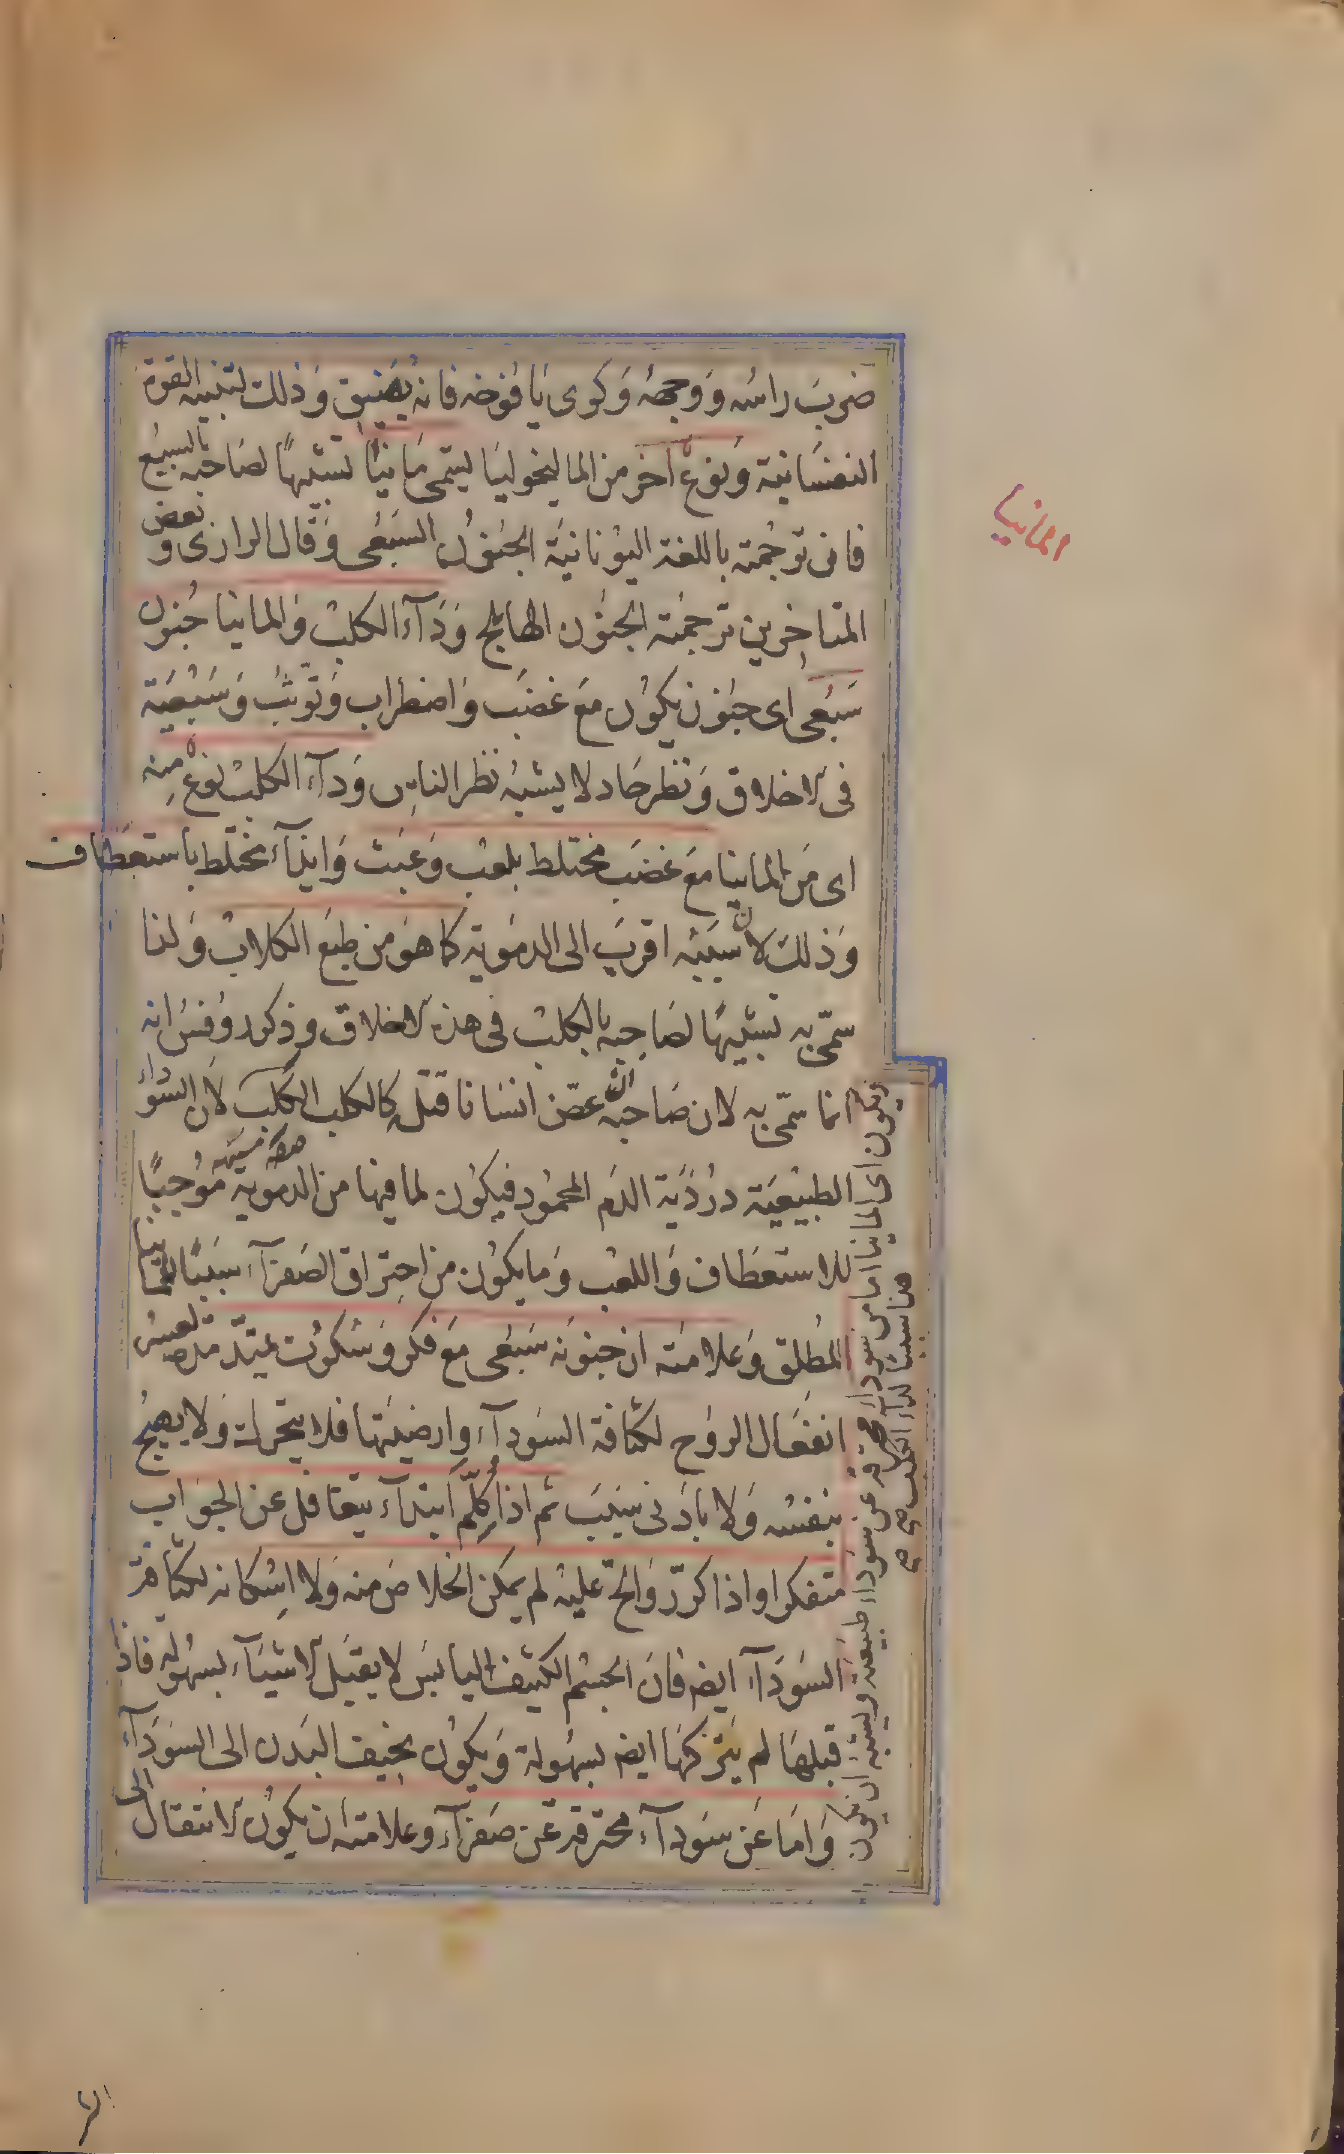 المانيا
ضرب راسه ووجهه وكوى يافوخه فانه يفيق وذلك لتنبيه القوة
النفسانية ونوع آخر من الماليخوليا يسمى مانيا تشبيها لصاحبه بالسبع
فان ترجمته باللغة اليونانية الجنون السبعى وقال الرازى وبعض
المتاخرين ترجمته الجنون الهائج وداء الكلب والمانيا جنون
سبعى اى جنون يكون مع غضب واضطراب وتوثب وسبعية
فى الاخلاق ونظر حاد لا يشبه نظر الناس وداء الكلب نوع منه
اى من المانيا مع غضب مختلط بلعب وعبث وايذاء مختلط باستعطاف
وذلك لان سببه اقرب الى الدموية كما هو من طبع الكلاب ولذا
سمى به تشبيها لصاحبه بالكلب فى هذه الاخلاق وذكر روفس انه
انما سمى به لان صاحبه ان عض انسانا قتله كالكلب الكلب لان السوداء
الطبيعية دردية الدم المحمود فيكون لما فيها من الدموية موجبا
للاستعطاف واللعب وما يكون من احتراق الصفراء سببا للمانيا
المطلق وعلامته ان جنونه سبعى مع فكر وسكوت يمتد مدة لعسر
انفعال الروح لكثافة السوداء وارضيتها فلا يتحرك ولا يهيج
بنفسه ولا بادنى سبب ثم اذا كلم ابتداء يتغافل عن الجواب
متفكرا واذا كرر والح عليه لم يمكن الخلاص منه ولا اسكانه لكثافة
السوداء ايضه فان الجسم الكثيف اليابس لا يقبل الاشياء بسهولة فاذا
قبلها لم يتركها ايضه بسهولة ويكون نحيف البدن الى السوداء
واما عن سوداء محترقة عن صفراء وعلامته ان يكون الانتقال الى
ويكون اى المانيا اما من سوداء محترقة عن سوداء طبيعية ويشبه ان يكون
مناسبا لداء الكلب